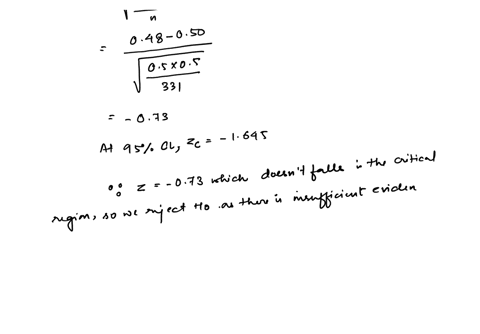 n
= 0.48-0.50
√ 0.5×0.5
331
= -0.73
At 95% CL, Zc = -1.645
∴ Z = -0.73 which doesn't falls in the critical
region, so we reject Ho as there is insufficient eviden